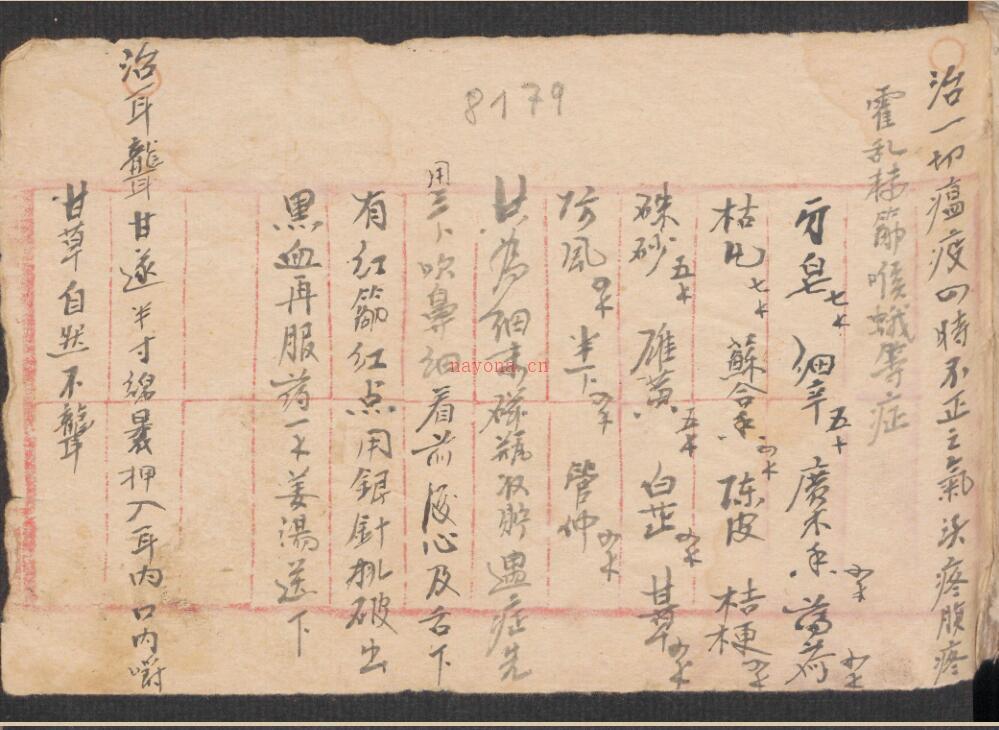 治一切瘟疫四時不正之氣头疼腹疼
霍乱转筋喉蛾等症
牙皂七 细辛五 廣木香 薄荷
枯凡七 蘇合香 陈皮 桔梗
硃砂五 雄黄五 白芷 甘草
防风 半下 管仲
共為细末磁瓶收貯遇症先
用三卜吹鼻细看前後心及舌下
有红筋红点用银針挑破出
黑血再服药一 姜湯送下
治耳聾甘遂半寸綿裹押入耳内口内嚼
甘草自然不聾
8179
nayona.cn